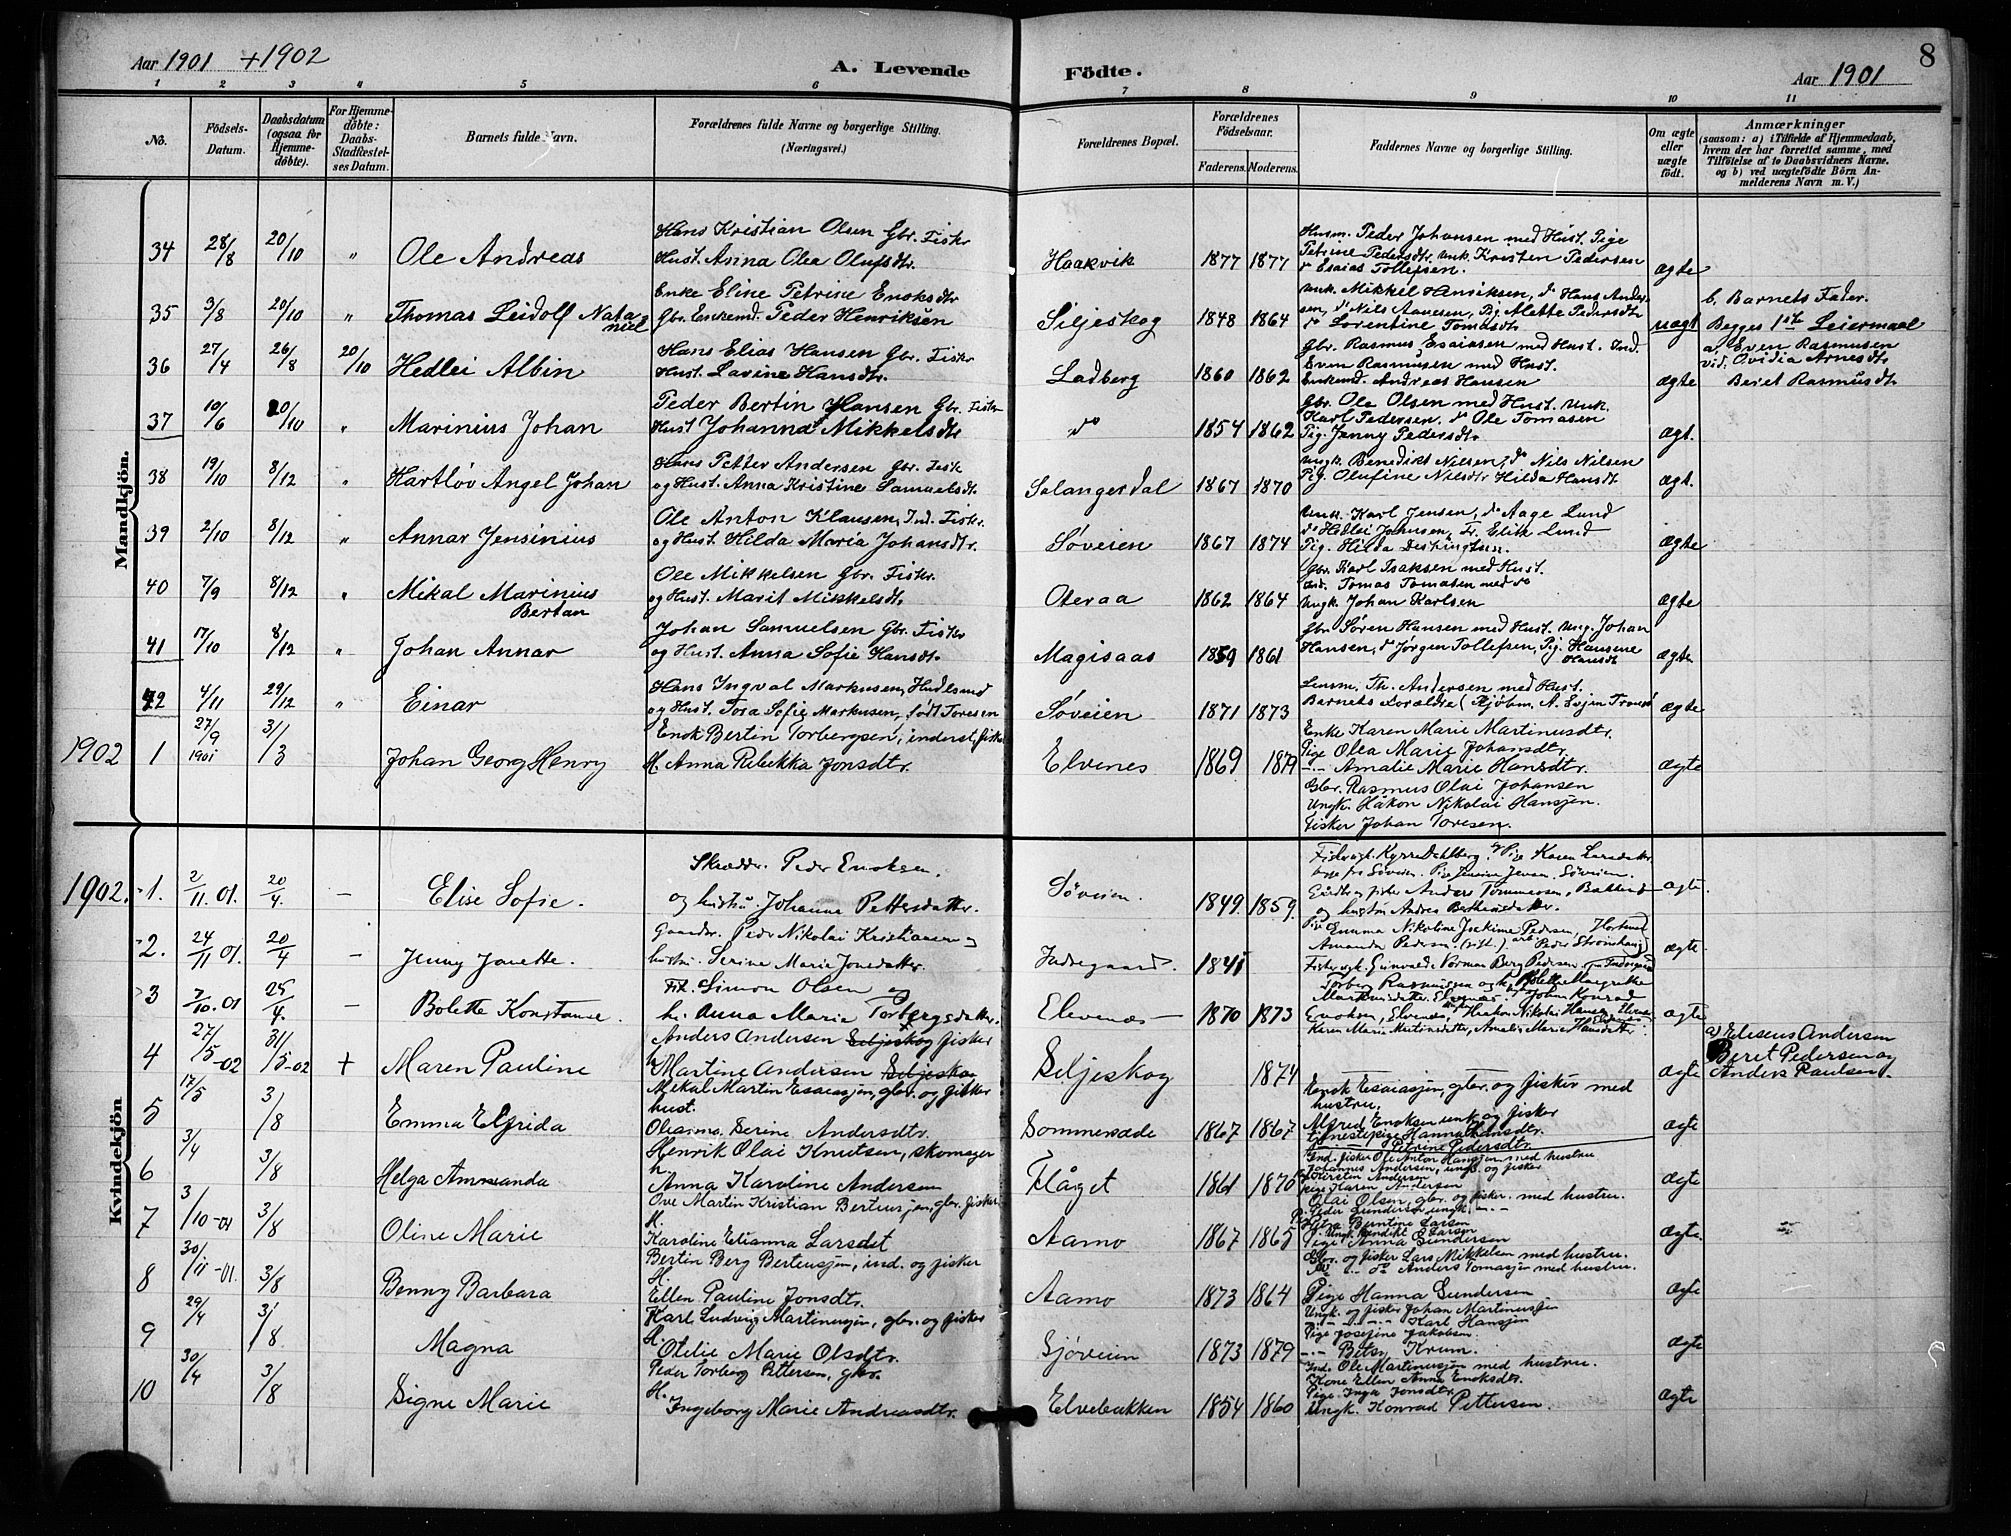 Aar 1901 + 1902
A. Levende Födte.
Aar 1901
8
1 2 3 4 5 6 7 8 9 10 11
No.
Födsels-Datum.
Daabsdatum (ogsaa for Hjemmedöbte).
For Hjemmedöbte: Daabs-Stadfæstelses Datum.
Barnets fulde Navn.
Forældrenes fulde Navne og borgerlige Stilling. (Næringsvei.)
Forældrenes Bopæl.
Forældrenes Födselsaar.
Faderens. Moderens.
Faddernes Navne og borgerlige Stilling.
Om ægte eller uægte födt.
Anmærkninger
(saasom: a) i Tilfælde af Hjemmedaab, hvem der har forrettet samme, med Tilföielse af to Daabsvidners Navne. og b) ved uægtefödte Börn Anmelderens Navn m. V.)
Mandkjön.
34 28/8 20/10 " Ole Andreas
Hans Kristian Olsen Gbr. Fisker
Hust. Anna Olea Olufsdtr.
Haakvik 1877 1877
Husm. Peder Johansen med Hust. Pige
Petrine Pedersdtr. unk. Kristen Pedersen
& Esaias Tollefsen.
ægte
35 3/8 20/10 " Thomas Leidolf Nataniel
Enke Eline Petrine Enoksdtr
Gbr. Enkemd. Peder Henriksen
Siljeskog 1848 1864
unk. Mikkel Henriksen, do Hans Andersen, do Nils Aanesen, Pig. Mette Pedersdtr
do Lorentine Tomasdtr
uægt
b. Barnets Fader.
Begges 1ste Leiermaal
36 27/4 26/8 20/10 Hedlei Albin
Hans Elias Hansen Gbr. Fisker
Hust. Lavine Hansdtr.
Ladberg 1860 1862
Gbr. Rasmus Esaiasen med Hust. Ind.
Even Rasmusen med Hust.
Enkemd. Andreas Hansen
ægte
a. Even Rasmusen
vid: Ovidia Arnesdtr
Beret Rasmusdtr
37 10/6 20/10 " Marinius Johan
Peder Bertin Hansen Gbr. Fisker
Hust Johanna Mikkelsdtr
do 1854 1862
Gbr. Ole Olsen med Hust. unk.
Karl Pedersen. do Ole Tomasen
Pig. Jenny Pedersdtr.
ægt.
38 19/10 8/12 " Hartløv Angel Johan
Hans Petter Andersen Gbr. Fisk
og Hust. Anna Kristine Samuelsdt.
Salangsdal 1867 1870
ungk. Benedikt Nilsen, do Nils Nilsen
Pig. Olufine Nilsdtr Hilda Hansdt
ægt.
39 2/10 8/12 " Annar Jensinius
Ole Anton Klausen, Ind. Fisker.
og Hust. Hilda Maria Johansdtr.
Søveien 1867 1874
unk. Karl Jensen, do Aage Lund
do Hedlei Johnsen, Fr. Elise Lund
Pig. Hilda
ægte
40 7/9 8/12 " Mikal Marinius Bertan
Ole Mikkelsen Gbr. Fisker.
og Hust. Marit Mikkelsdtr.
Oteraa 1862 1864
Gbr. Karl Isaksen med Hust.
Ind. Tomas Tomasen med do
ungk. Johan Karlsen
ægte
41 17/10 8/12 " Johan Annar
Johan Samuelsen Gbr. Fisker
og Hust. Anna Sofie Hansdt.
Magisaas 1859 1861
Gbr. Søren Hansen med Hust. ung. Johan
Hansen, do Jørgen Tollefsen, Pig. Hansine
Hansdt
ægte
42 4/11 29/12 " Einar
Hans Ingval Markusen, Hndlsmd
og Hust. Tora Sofie Markusen, født Toresen
Søveien 1871 1873
Lensm. Th. Andersen med Hust.
Barnets Forældre (Kjøbm. A. Evjen
ægte
1902 1 27/9 1901 31/3 Johan Georg Henry
Enok Bertin Torbergsen, inderst, fisker
H. Anna Rebekka Jonsdtr.
Elvenes 1869 1879
Enke Karen Marie Martinusdtr.
Pige Olea Marie Johansdtr.
-"- Amalie Marie Hansdtr.
Gbr. Rasmus Olai Johansen
Ungk. Håkon Nikolai Hansen.
Fisker Johan Toresen.
ægte
Kvindekjön
1902. 1. 2/11 01. 20/4. – Elise Sofie.
Skrædder. Peder Enoksen.
og hustru Johanna Pettersdatter.
Søveien. 1849. 1859.
Pige Karen Larsdatter
fra Søveien. Pige Jensine Jensen, Søveien.
Gårdbr og fisker Anders Tommesen,
og hustru Andrea Bertheusdatter.
ægte.
2. 24/11 01. 20/4 – Jenny Jonette.
Gaardbr. Peder Nikolai Kristiansen og
hustru Serine Marie Jonsdatter.
Indregaard. 1845
Pige Emma Nikoline Joakime Pedersen,
Amanda Pedersen Peder Strømhaug
ægte.
3 7/10. 01 25/4. – Bolette Konstanse.
Fisk. Simon Olsen og
h. Anna Marie Torbergsdatter.
Elvenæs – 1870 1873
Torberg Rasmussen og h. Bolette Margrethe
Martinusdatter, Elvenæs. Johan Konrad
Enoksen, Elvenæs, Haakon Nikolai Hansen, Elvenæs
Karen Marie Martinsdatter, Amalie Marie Hansdatter.
ægte
4 27/5-02 31/5-02 + Maren Pauline
Anders Andersen Seljeskog fisker
Martine Andersen Seljeskog
Seljeskog 1874
ægte
a) Edisens Andersen
Beret Pedersen og
Anders Paulsen.
5 17/5 3/8 Emma Elfrida
Mikal Martin Esaiassen, gbr. og fisker
hust.
Oleanna Serine Andersdtr.
Sommersæde 1867 1867
Enok Esaiassen, gbr. og fisker med
hustru.
Alfred Enoksen unk. og fisker
Hanna Hansdtr.
Petrine Pedersdtr.
ægte
6 3/4 3/8 Helga Ammanda
Henrik Olai Knutsen, skomager
h.
Anna Karoline Andersen
Flåget 1861 1870
Ind. fisker Ole Anton Hansen med hustru
Johannes Andersen, ungk. og fisker
Kirsten Andersen
pige Karen Andersen
ægte
7 3/10-01 3/8 Oline Marie
Ove Martin Kristian Berteussen, gbr. fisker
H.
Karoline Elianna Larsdt
Aamo 1867 1865
Olai Olsen, gbr. og fisker. med hustru.
Peder Gundersen ungk. -"-
Petra Berntine Larsen
Ungk. Bendikt Larsen
Pige Anna Gundersen
ægte.
8 30/11-01. 3/8 Benny Barbara
Bertin Berg Berteussen, ind. og fisker
H.
Ellen Pauline Jonsdtr.
Aamo 1873 1864
Gbr. og fisker Lars Mikkelsen med hustru.
do -"- do Anders Tomassen med hustru.
Pige Hanna Gundersen
Ungk. og fisker Johan Martinussen
ægte
9 29/4 3/8 Magna
Karl Ludvig Martinussen, gbr. og fisker
H.
Otelie Marie Olsdtr.
Sjøveien 1873 1879
-"- Karl Hanssen
Pige Josefine Jakobsen.
-"- Betsy Krum.
Ind. Ole Martinussen med hustru.
ægte
10 30/4 3/8 Signe Marie
Peder Torberg Pettersen, gbr.
H.
Ingeborg Marie Andreasdtr.
Elvebakken 1854 1860
Kone Ellen Anna Enoksdtr.
Pige Inga Jonsdtr.
Ungk. Konrad Pettersen.
ægte